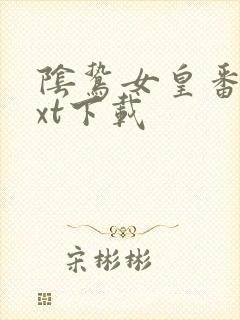 陰鷙女皇番
xt下載
宋彬彬